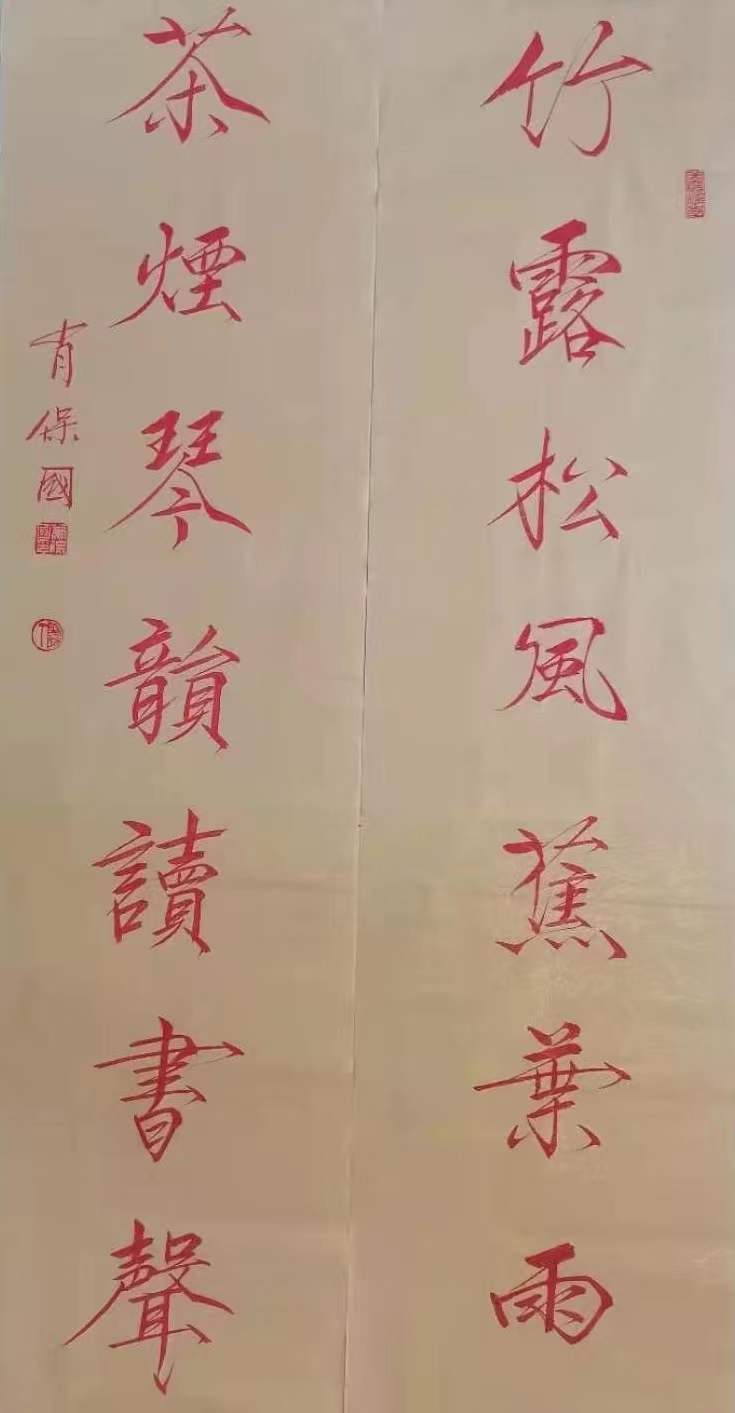 竹露松風蕉葉雨
茶煙琴韻讀書聲
肖保國